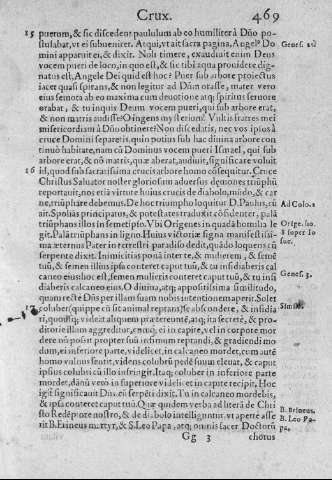 Crux. 469
15 puerum, & sic discedens paululum ab eo humiliter à Dño po-
stulabat, vt ei subueniret. Atqui, vt ait sacra pagina, Angelꝰ Do-
mini apparuit ei, & dixit. Noli timere, exaudiuit enim Deus
vocem pueri de loco, in quo est, & sic tibi aqua prouidere dig-
natus est, Angele Dei quid est hoc? Puer sub arbore proiectus
iacet quasi spirans, & non legitur ad Dñm orasse, mater vero
eius semota ab eo maxima cum deuotione atq; spiritu feruore
orabat, & tu inquis Deum vocem pueri, qui sub arbore erat,
& non matris audisse? O ingens mysterium! Vultis fratres mei
misericordiam à Dño obtinere? Non discedatis, nec vos ipsos à
cruce Domini separetis, quin potius sub hac diuina arbore con-
tinuò habitate, nam cũ Dominus vocem pueri Ismael, qui sub
arbore erat, & nõ matris, quæ aberat, audiuit, significare voluit
16 id, quod sub sacratissima crucis arbore homo cõsequitur. Cruce
Christus Saluator noster gloriosum aduersus dæmones triũphũ
reportauit, nos etiã virtute huius crucis de diabolo, mũdo, & car
ne, triũphare debemus. De hoc triumpho loquitur D. Paulus, cũ
ait. Spoliãs principatus, & potestates traduxit cõsidenter, palã
triũphans illos in semetipso. Vbi Origenes in quadã homila le
git. Palã triũphans in ligno. Huius victoriæ signa manifestissi-
ma æternus Pater in terrestri paradiso dedit, quãdo loquens cũ
serpente dixit. Inimicitias ponã inter te, & mulierem, & semẽ
tuũ, & semen illius ipsa conteret caput tuũ, & tu insidiaberis cal
caneo eius hoc est, semen mulieris conteret caput tuũ, & tu insi
diaberis calcaneo eius. O diuina, atq; appositissima similitudo,
quam recte Dñs per illam suam nobis intentionem aperit. Solet
17 coluber quippe cũ sit animal reptans, se abscondere, & insidia
ri, quousq; videat aliquem prætereuntẽ, atq; ita secretè, & pro-
ditoriè illum aggreditur, eumq; ei in capite, vel in corpore mor
dere nõ possit propter suũ infimum reptandi, & gradiendi mo
dum, ei inferiore parte, videlicet, in calcaneo mordet, cum autẽ
homo vult eius sentit, videns colubrũ pede suum eleuat, & caput
ipsius colubri cũ illo infringit. Itaq; coluber in inferiore parte
mordet, dãnũ verò in superiore videlicet in capite recipit. Hoc
igit̃ significauit Dñs, eũ serpẽti dixit. Tu in calcaneo mordebis,
& ipsa conteret caput tuũ. Quæ quidem verba ad literã de Chri
sto Redẽptore nostro, & de diabolo intelliguntur. vt apertè asse
rit B. Erineus martyr, & S. Leo Papa, atq; omnis sacer Doctorũ
Gg 3 chorus
Genes. 21.
Ad Colo. 2.
Orige. ho.
8 super Io
sue.
Genes. 3.
Simile.
B. Erineus.
B. Leo Pa-
pa.